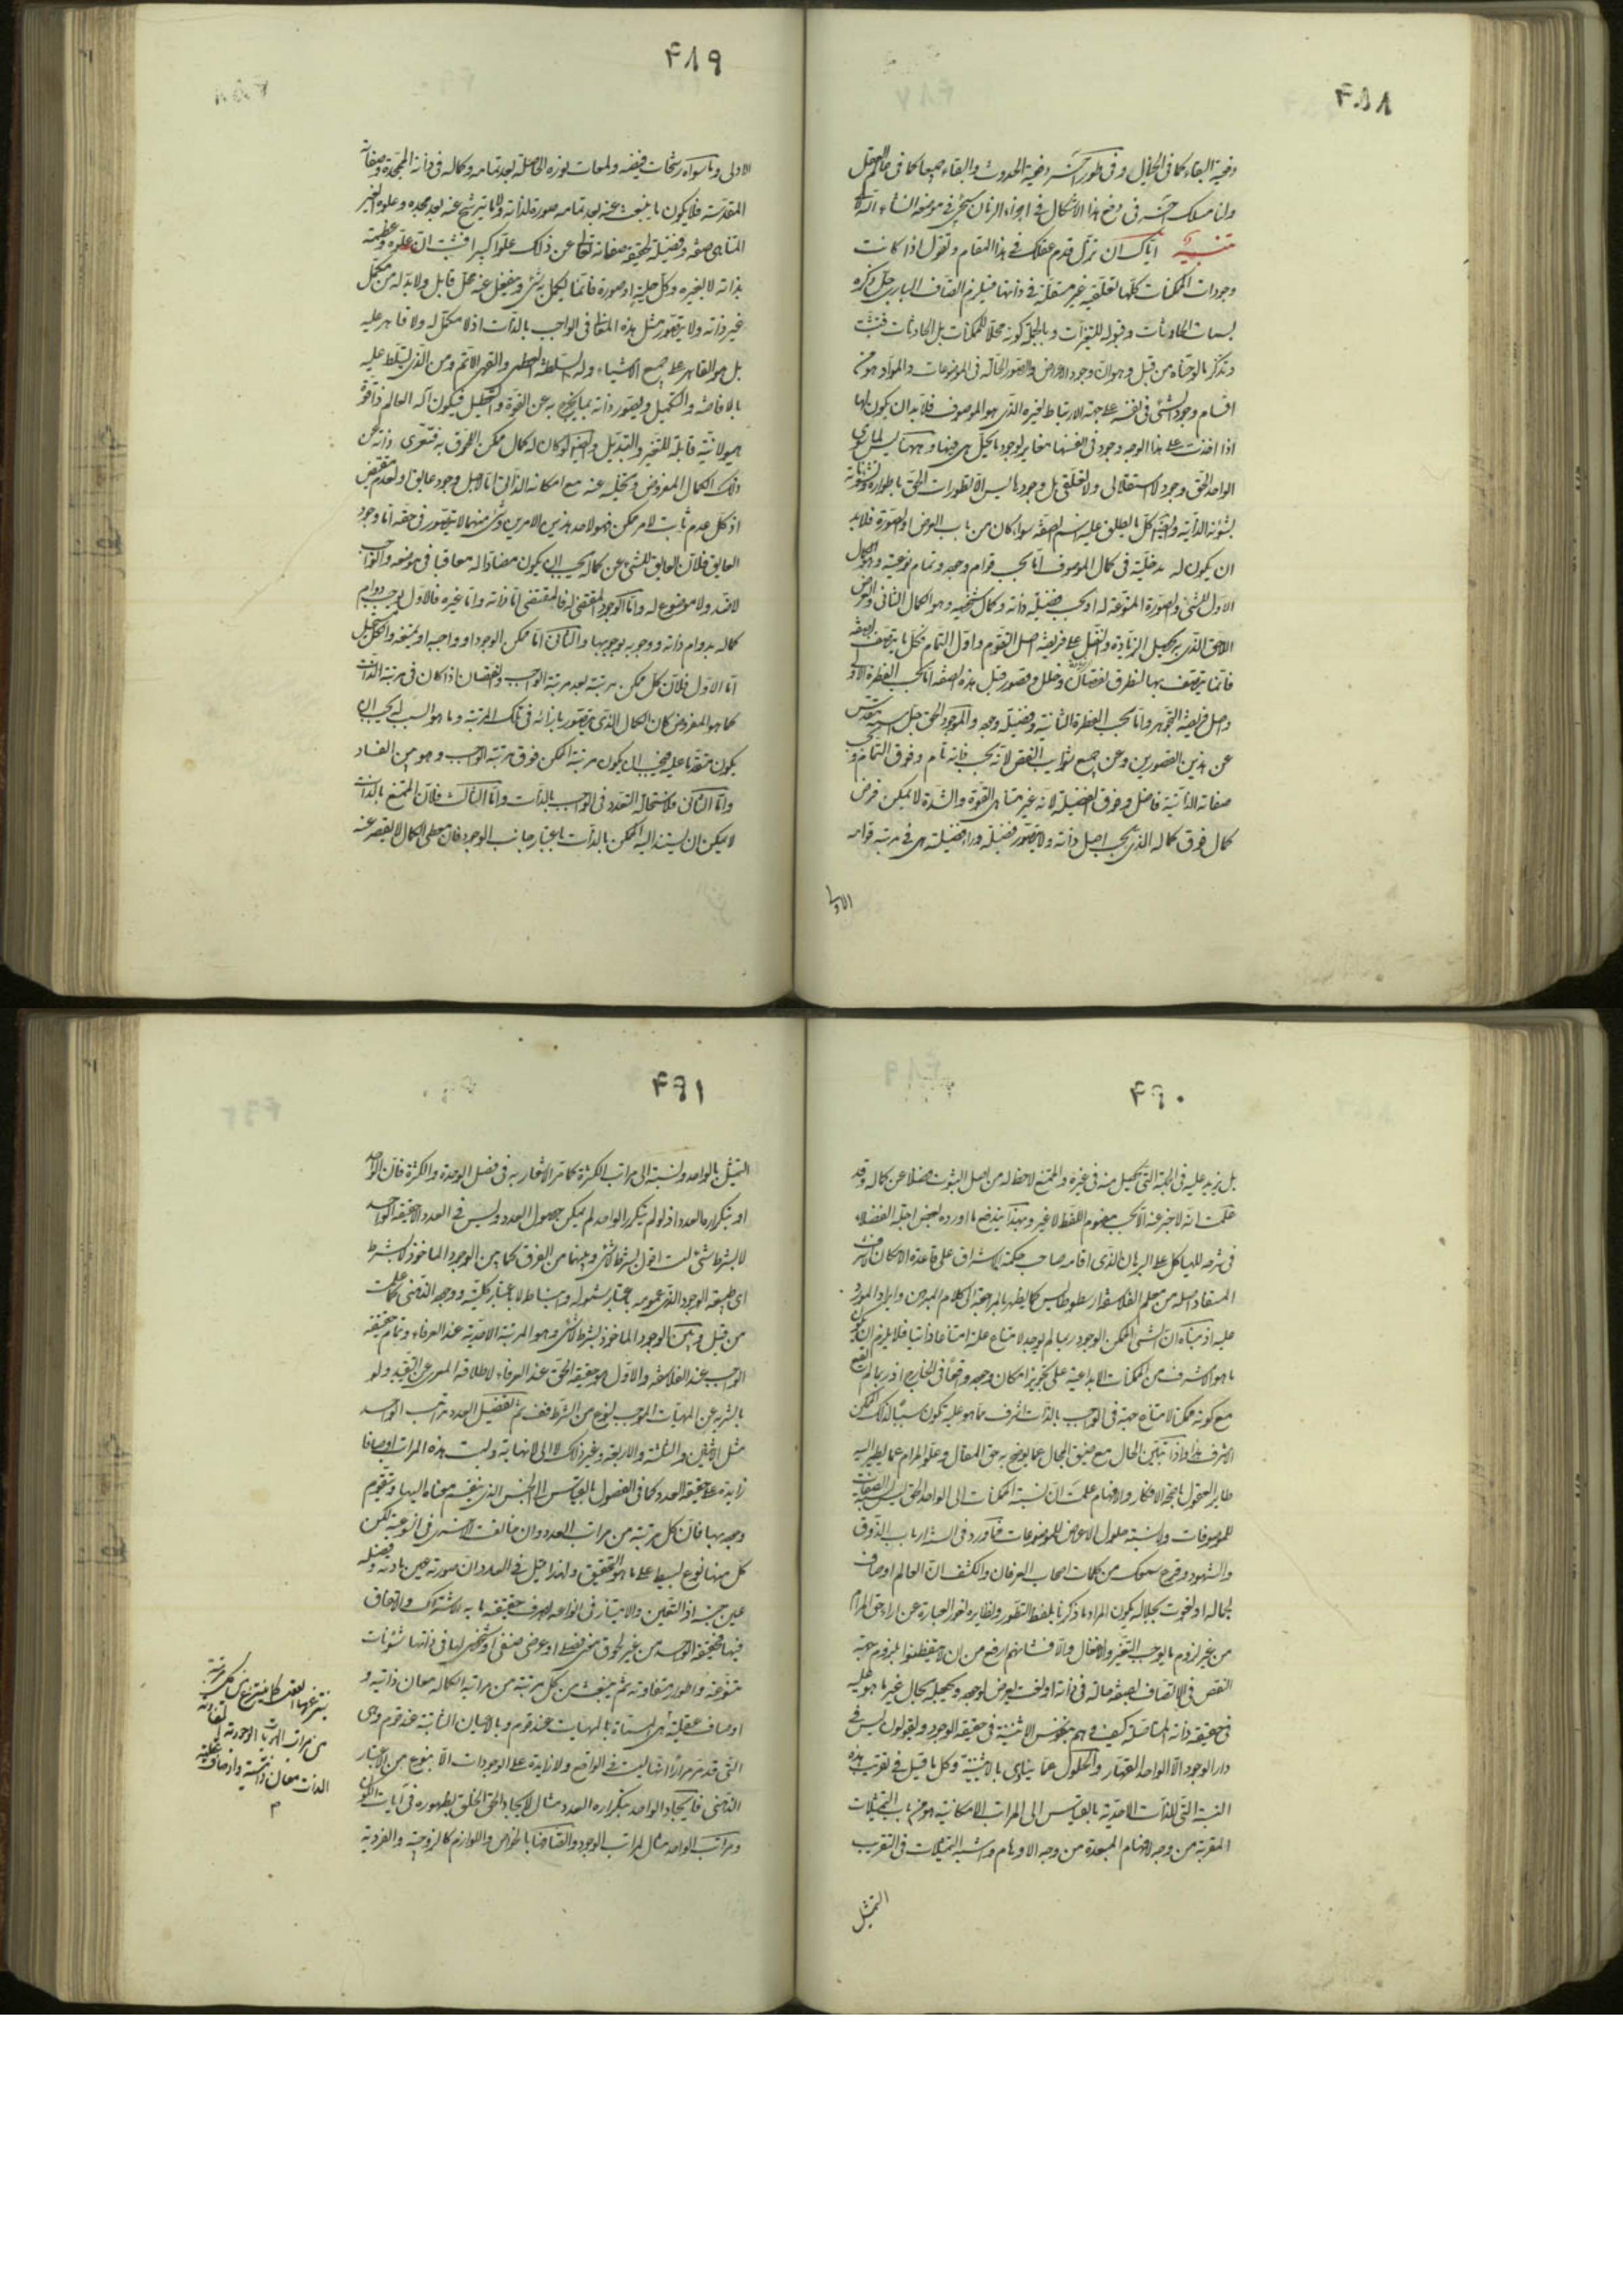 ۴۸۸
وجهة البقاء كما في الخيال وفي طور آخر وجهة الحدوث والبقاء جميعا كما في عالم العقل
ولنا مسلك آخر في دفع هذا الاشكال في اجزاء الزمان سيجئ في موضعه انشاء الله
تنبيه اياك ان تزل قدم عقلك في هذا المقام وتقول اذا كانت
وجودات الممكنات كلها تعلقية غير مستقلة في ذاتها فيلزم اتصاف الباري جل ذكره
بسمات الحادثات وقبوله للتغيرات وبالجملة كونه محلا للممكنات بل الحادثات فتثبت
وتذكر ما لوحناه من قبل وهو ان وجود الاعراض والصور الحالة في الموضوعات والمواد هو من
اقسام وجود الشئ في نفسه على جهة الارتباط لغيره الذي هو الموصوف فلا بد ان يكون لها
اذا اخذت على هذا الوجه وجود في انفسها مغاير لوجود ما يحل هي فيها وههنا ليس لما سوى
الواحد الحق وجود لا استقلالي ولا تعلقي بل وجوداتها ليس الا تطورات الحق باطواره وتشؤناته
بشؤنه الذاتية وايضا كل ما يطلق عليه اسم الصفة سواء كان من باب العرض او الصورة فلا بد
ان يكون له مدخلية في كمال الموصوف اما بحسب قوام وجوده وتمام نوعيته وهو الكمال
الاول للشئ والصورة المنوعة له او بحسب فضيلة ذاته وكمال شخصيته وهو الكمال الثاني والعرض
اللاحق الذي به يحصل الزيادة والنفل على فريضة اصل التقوم واول التمام فكل ما يتصف بصفة
فانما يتصف بها لتطرق نقصان وخلل وقصور قبل هذه الصفة اما بحسب الفطرة الاولى
واصل فريضة التجوهر واما بحسب الفطرة الثانية وفضيلة وجوده والموجود الحق جل اسمه مقدس
عن هذين القصورين وعن جميع شوائب النقص لانه بحسب ذاته تام وفوق التمام وبحسب
صفاته الذاتية فاضل وفوق الفضيلة لانه غير متناهي القوة والشدة لا يمكن فرض
كمال فوق كماله الذي بحسب اصل ذاته ولا يتصور فضيلة وراء فضيلته هي في مرتبة قوامه
الاولى
۴۸۹
الاولى وما سواه رشحات فيضه ولمعات نوره الحاصلة بعد تمامه وكماله في ذاته المجردة وصفاته
المقدسة فلا يكون ما ينبعث عنه بعد تمامه صورة لذاته ولا ما يترشح عنه بعد مجده وعلوه الغير
المتناهي صفة وفضيلة لحقيقة صفاته تعالى عن ذلك علوا كبيرا فثبت ان علوه وعظمته
بذاته لا بغيره وكل حلية او صورة فانما يكمل به شئ وينفعل عنه محل قابل ولا بد له من مكمل
غير ذاته ولا يتصور مثل هذه المعاني في الواجب بالذات اذ لا مكمل له ولا قاهر عليه
بل هو القاهر على جميع الاشياء وله السلطنة العظمى والقهر الاتم ومن الذي يتسلط عليه
بالافاضة والتكميل ويصور ذاته بما يخرج به عن القوة والتعطيل فيكون آله العالم ذا قوة
هيولانية قابلة للتغير والتبديل وايضا لو كان له كمال ممكن اللحوق به فتعرى ذاته عن
ذلك الكمال المفروض وتخليه عنه مع امكانه الذاتي اما لاجل وجود عايق او لعدم مقتض
اذ كل عدم ثابت لامر ممكن فهو لاحد هذين الامرين وشئ منهما لا يتصور في حقه اما وجود
العايق فلان العايق للشئ عن كماله يجب ان يكون مضادا له معاقبا في موضعه والواجب
لا ضد له ولا موضوع له واما الوجود المقتضي له فالمقتضي اما ذاته واما غيره فالاول يوجب دوام
كماله بدوام ذاته ووجوبه بوجوبها والثاني اما ممكن الوجود او واجبه او ممتنعه والكل مستحيل
اما الاول فلان كل ممكن مرتبته بعد مرتبة الواجب والنقصان اذا كان في مرتبة الذات
كما هو المفروض كان الكمال الذي يتصور بازائه في تلك المرتبة وما هو السبب له يجب ان
يكون متقدما عليه فيجب ان يكون مرتبة الممكن فوق مرتبة الواجب وهو بين الفساد
واما الثاني فلاستحالة التعدد في الواجب بالذات واما الثالث فلان الممتنع بالذات
لا يمكن ان يستند اليه الممكن بالذات باعتبار جانب الوجود فان معطى الكمال لا يقصر عنه
۴۹۰
بل يزيد عليه في الجهة التي يحصل منه في غيره والممتنع لا حظ له من اصل الثبوت فضلا عن كماله وقد
علمت انه لا خبر عنه الا بحسب مفهوم اللفظ لا غير وبهذا يندفع ما اورده بعض اجلة الفضلاء
في شرحه للهياكل على البرهان الذي اقامه صاحب حكمة الاشراق على قاعدة الامكان الاشرف
المستفاد اصله من معلم الفلاسفة ارسطوطاليس كما يظهر بالمراجعة الى كلام المبرهن وايراد المورد
عليه اذ مبناه ان الشئ الممكن الوجود ربما لم يوجد لامتناع علته امتناعا ذاتيا فلا يلزم ان يكون
ما هو الاشرف من الممكنات الابداعية على تجويز امكان وجوده واقعا في الخارج اذ ربما لم يقع
مع كونه ممكنا لامتناع جهة في الواجب بالذات اشرف مما هو عليه يكون سببا لذلك الممكن
الاشرف هذا واذا تبين الحال مع ضيق المجال عما يوضح به حق المقال وعلو المرام عما يطير اليه
طاير العقول باجنحة الافكار والافهام علمت ان نسبة الممكنات الى الواحد الحق ليس نسبة الصفات
للموصوفات ولا نسبة حلول الاعراض للموضوعات فما ورد في السنة ارباب الذوق
والشهود وقرع سمعك من كلمات اصحاب العرفان والكشف ان العالم اوصاف
لجماله او نعوت لجلاله يكون المراد ما ذكرنا بلفظ التطور ونظايره لعوز العبارة عن اداء حق المرام
من غير لزوم ما يوجب التغير والانفعال والا فشانهم ارفع من ان لا يتفطنوا بلزوم جهة
النقص في الاتصاف بصفة حالة في ذاته او نعت يعرض لوجوده ويجعله بحال غير ما هو عليه
في حقيقة ذاته المتاصلة كيف وهم ينفون الاثنينية في حقيقة الوجود ويقولون ليس في
دار الوجود الا الواحد القهار والحلول مما ينادي بالاثنينية وكل ما قيل في تقريب هذه
النسبة التي للذات الاحدية بالقياس الى المراتب الامكانية هو من باب التمثيلات
المقربة من وجه للافهام المبعدة من وجه للاوهام واشبه التمثيلات في التقريب
التمثيل
۴۹۱
التمثيل بالواحد ونسبته الى مراتب الكثرة كما مر الاشعار به في فصل الوحدة والكثرة فان الواحد
اوجد بتكراره العدد اذ لو لم يتكرر الواحد لم يمكن حصول العدد وليس في العدد الا حقيقة الواحد
لا بشرط شئ لست اقول بشرط لا شئ وبينهما من الفرق كما بين الوجود الماخوذ لا بشرط
اي طبيعة الوجود الذي عمومه باعتبار شموله وانبساطه لا باعتبار كليته ووجوده الذهني كما علمت
من قبل وبين الوجود الماخوذ بشرط لا شئ وهو المرتبة الاحدية عند العرفاء وتمام حقيقة
الواجب عند الفلاسفة والاول هو حقيقة الحق عند العرفاء لاطلاقه المعرى عن التقييد ولو
بالتنزيه عن المهيات الموجب لنوع من الشرط فافهم ثم يفصل العدد مراتب الواحد
مثل الاثنين والثلثة والاربعة وغير ذلك لا الى نهاية وليست هذه المراتب اوصافا
زايدة على حقيقة العدد كما في الفصول بالقياس الى الجنس الذي ينقسم معناه اليها ويتقوم
وجوده بها فان كل مرتبة من مراتب العدد وان خالفت الاخرى في النوعية لكن
كل منها نوع بسيط على ما هو التحقيق ولهذا قيل في العدد ان صورته عين مادته وفصله
عين جنسه اذ التعين والامتياز في انواعه بصرف حقيقة ما به الاشتراك والاتفاق
فيها فحقيقة الواحد من غير لحوق معنى فصلي او عرضي صنفي او شخصي لها في ذاتها شئونات
متنوعة واطوار متفاوتة ثم ينبعث من كل مرتبة من مراتبه الكمالية معان ذاتية و
اوصاف عقلية هي المسماة بالمهيات عند قوم وبالاعيان الثابتة عند قوم وهي
التي قد مر مرارا انها ليست في الواقع ولا زايدة على الوجودات الا بنوع من الاعتبار
الذهني فايجاد الواحد بتكراره العدد مثال لايجاد الحق الخلق بظهوره في آيات الكون
ومراتب الواحد مثال لمراتب الوجود واتصافها بالخواص واللوازم كالزوجية والفردية
ينتزعها العقل كما ينتزع من كل مرتبة
من مراتب الهويات الوجودية المتفاوتة
الذات معان ذاتية واوصاف عقلية
م